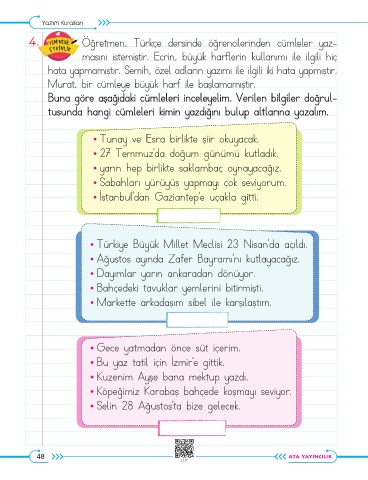 Yazım Kuralları
4. YENİ NESİL
ETKİNLİK
Öğretmen, Türkçe dersinde öğrencilerinden cümleler yaz-
masını istemiştir. Ecrin, büyük harflerin kullanımı ile ilgili hiç
hata yapmamıştır. Semih, özel adların yazımı ile ilgili iki hata yapmıştır.
Murat, bir cümleye büyük harf ile başlamamıştır.
Buna göre aşağıdaki cümleleri inceleyelim. Verilen bilgiler doğrul-
tusunda hangi cümleleri kimin yazdığını bulup altlarına yazalım.
• Tunay ve Esra birlikte şiir okuyacak.
• 27 Temmuz'da doğum günümü kutladık.
• yarın hep birlikte saklambaç oynayacağız.
• Sabahları yürüyüş yapmayı çok seviyorum.
• İstanbul'dan Gaziantep'e uçakla gitti.
• Türkiye Büyük Millet Meclisi 23 Nisan'da açıldı.
• Ağustos ayında Zafer Bayramı'nı kutlayacağız.
• Dayımlar yarın ankaradan dönüyor.
• Bahçedeki tavuklar yemlerini bitirmişti.
• Markette arkadaşım sibel ile karşılaştım.
• Gece yatmadan önce süt içerim.
• Bu yaz tatil için İzmir'e gittik.
• Kuzenim Ayşe bana mektup yazdı.
• Köpeğimiz Karabaş bahçede koşmayı seviyor.
• Selin 28 Ağustos'ta bize gelecek.
48
ATA YAYINCILIK